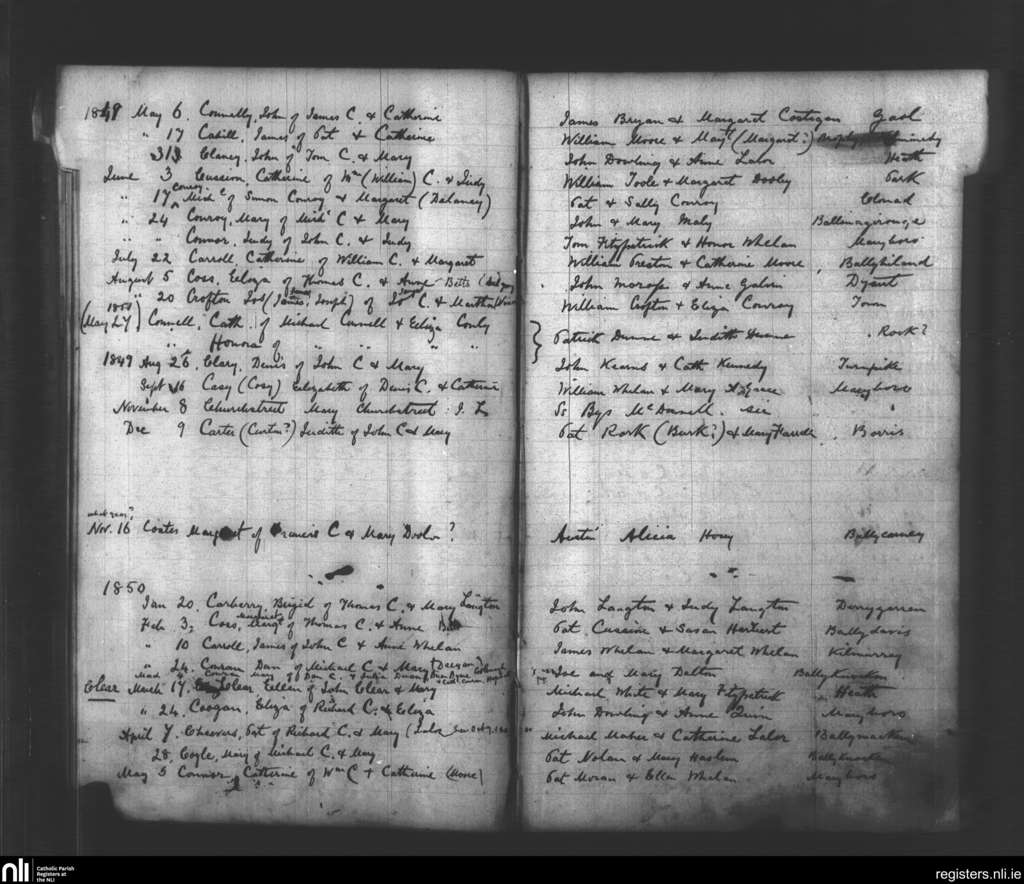 1849 May 6. Connelly, John of James C. & Catherine James Bryan & Margaret Costigan Gaol
" 17 Cahill, James of Pat & Catherine William Moore & Margt (Margaret?) Brophy
Clancy, John of Tom C. & Mary John Dowling & Anne Lalor Heath
June 3 Cussion, Catherine of Wm (William) C. & Judy William Toole & Margaret Dooley Park
" 17 Conroy Mich c of Simon Conroy & Margaret (Delaney) Pat & Sally Conroy Clonad
" 24 Conroy, Mary of Mich C & Mary John & Mary Maly
" " Connor, Judy of John C. & Judy Tom Fitzpatrick & Honor Whelan Maryboro
July 22 Carroll, Catherine of William C. & Margaret William Preston & Catherine Moore, Ballykiland
August 5 Coss, Eeliza of Thomas C. & Anne Betts John & Anne Galvin Dysart
" 20 Crofton Jos (James, Joseph) of C. & Martha William Crofton & Eliza Conroy Town
1850
(May 27) Connell, Cath. of Michael Connell & Eeliza Conly } Patrick Dunne & Judith Dunne Rork?
" Honora of " " " "
1849 Aug 26. Clary, Denis of John C & Mary John Kearns & Cath Kennedy Turnpike
Sept 16 Casy (Cosy) Elizabeth of Denis C. & Catherine William Whelan & Mary Maryboro
November 8 Churchstreet Mary Churchstreet I. L Sr Bys McDonnell. sic
Dec 9 Carter (Curtin?) Judith of John C & Mary Pat Rork (Burk?) & Mary Borris
what year?
Nov. 16 Coates Margaret of Francis C & Mary ? Austin Alicia Hovy Ballycarney
1850
Jan 20. Carberry, Brigid of Thomas C. & Mary Langton John Langton & Judy Langton Derrygarran
Feb 3, Coss, Margt of Thomas C. & Anne Pat. Cussion & Susan Herbert Ballydavis
" 10 Carroll, James of John C & Anne Whelan James Whelan & Margaret Whelan Kilmurray
" 24. Conran Dan of Michael C & Mary Joe and Mary Dalton Ballyknockan
Clear March 17, Clear Ellen of John Clear & Mary Michael White & Mary Fitzpatrick Heath
" 24, Coogan, Eliza of Richard C. & Eeliza John Dowling & Anne Quin Maryboro
April 7 Cheevers, Pat of Richard C. & Mary (Lalor Michael Maher & Catherine Lalor Ballymacken
28, Coyle, Mary of Michael C. & Mary Pat Nolan & Mary Haslem Ballyknockan
May 5 Connor, Catherine of Wm C + Catherine (Moore) Pat Moran & Ellen Whelan Maryboro
nli Catholic Parish
Registers at
the NLI
registers.nli.ie